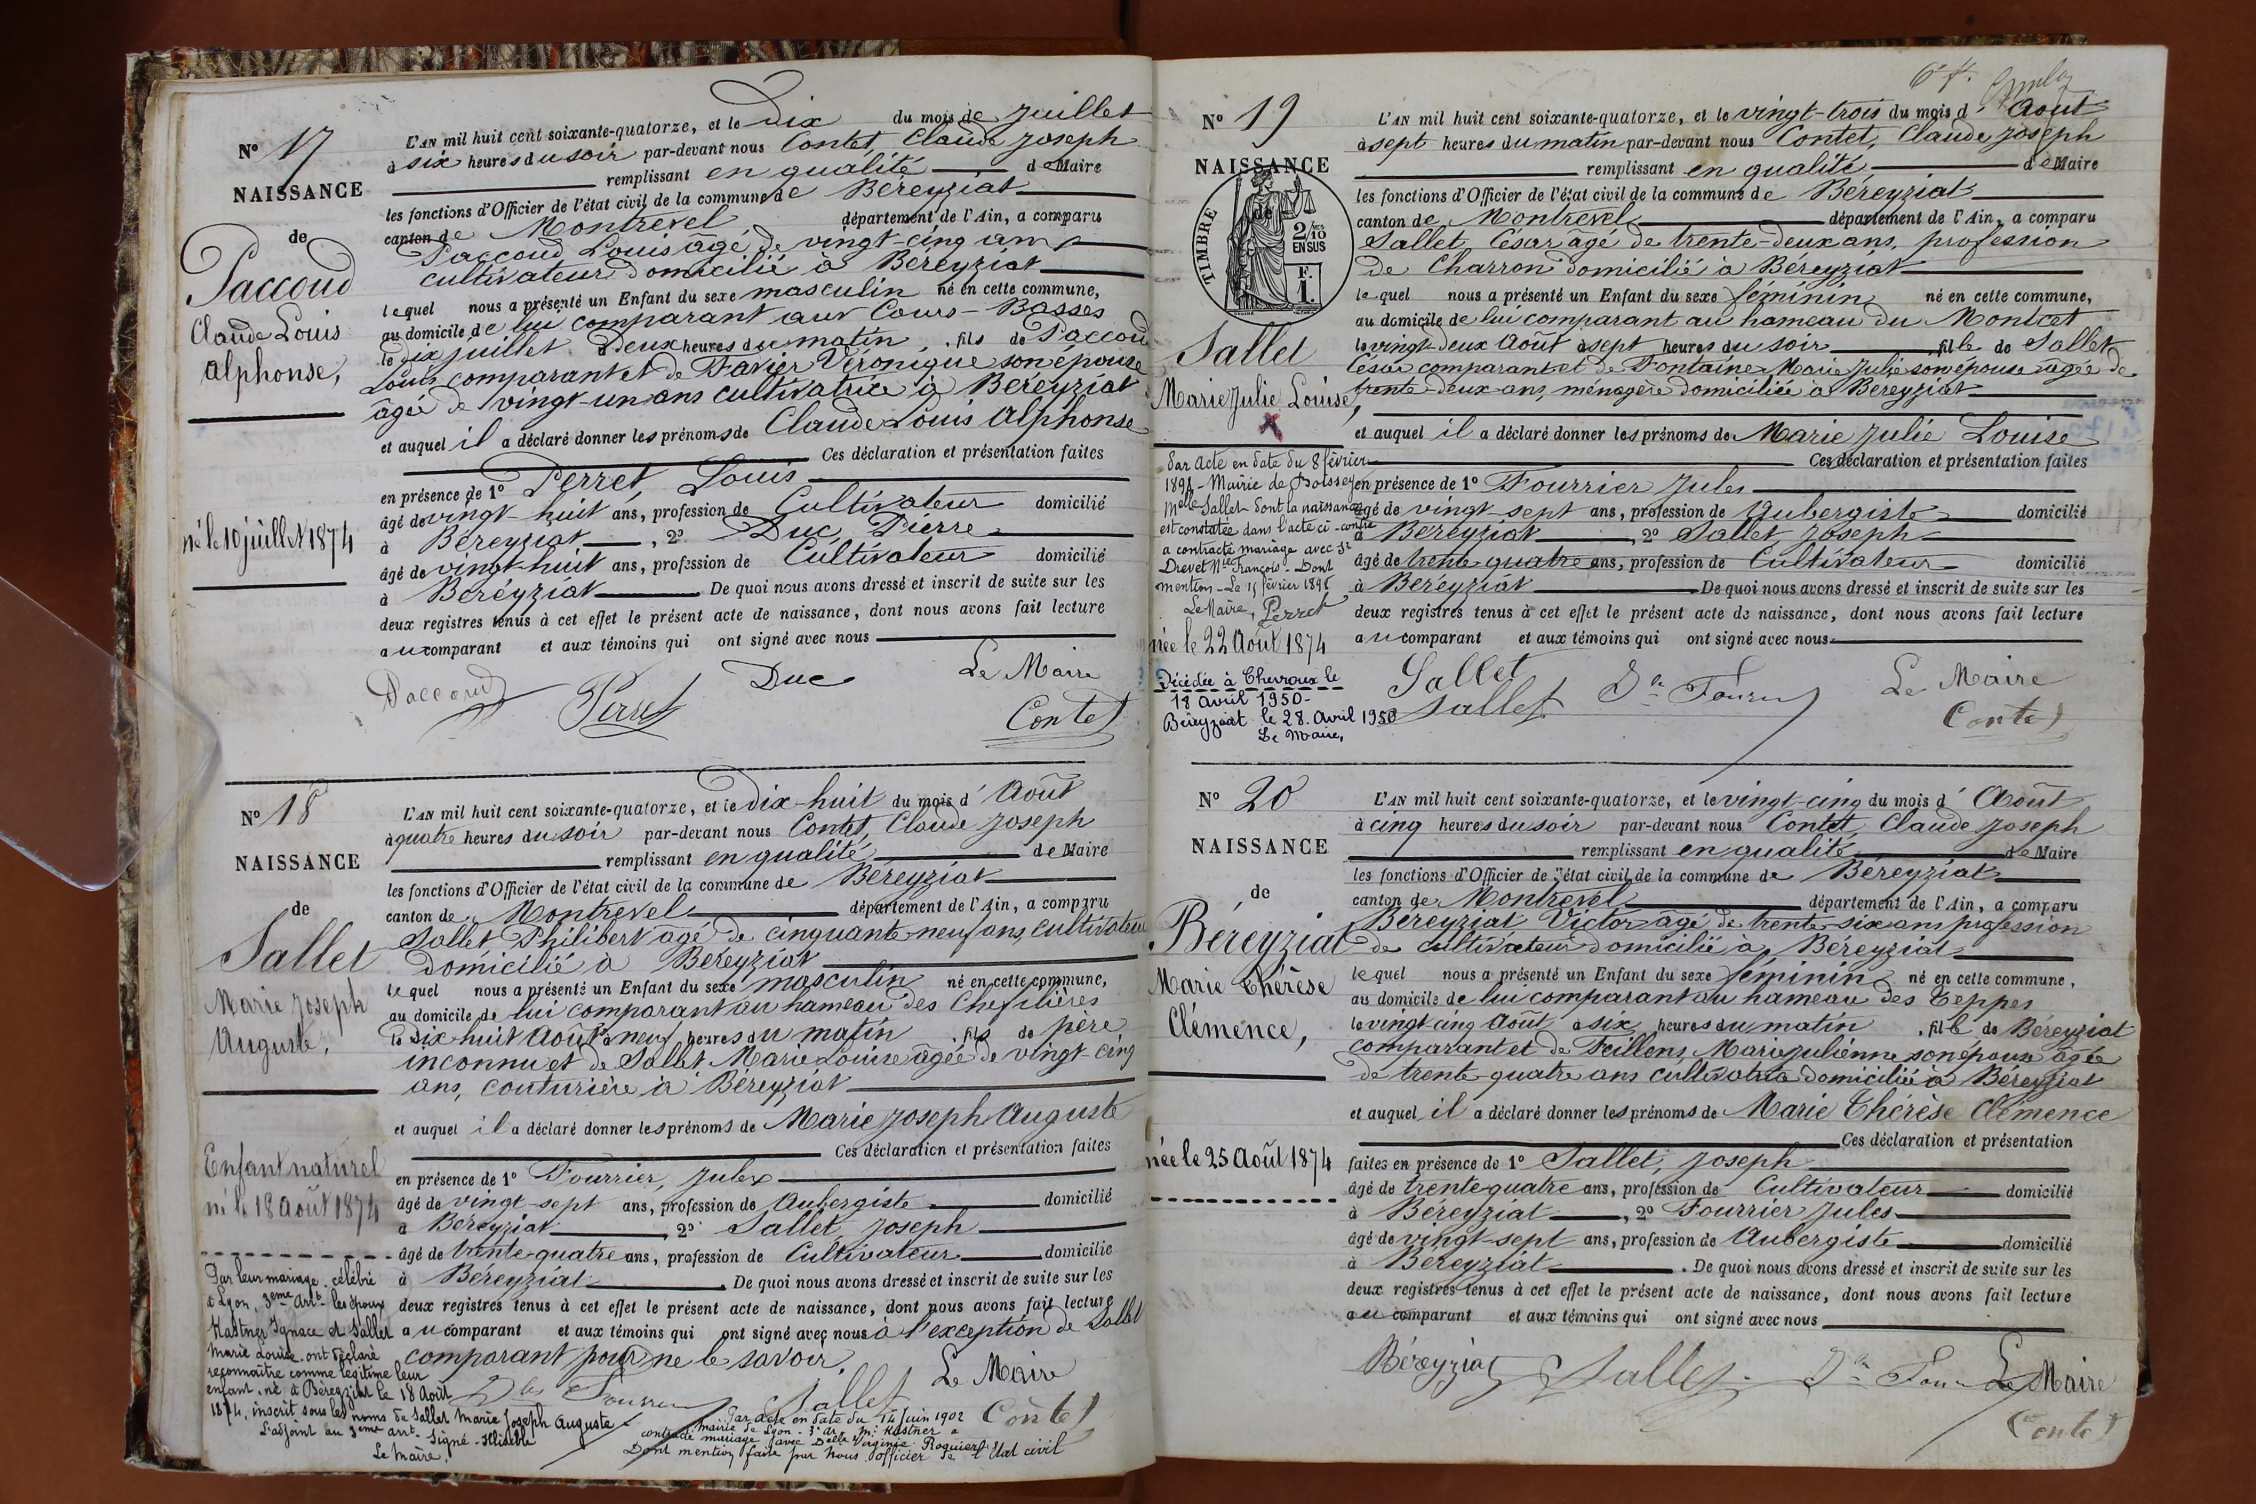 N° 17
NAISSANCE
de
Paccoud
Claude Louis
Alphonse,
né le 10 juillet 1874
L'AN mil huit cent soixante-quatorze, et le dix du mois de juillet
à six heures du soir par-devant nous Contet, Claude Joseph
remplissant en qualité de Maire
les fonctions d'Officier de l'état civil de la commune de Béreyziat
canton de Montrevel département de l'Ain, a comparu
Paccoud Louis âgé de vingt-cinq ans
cultivateur domicilié à Béreyziat
lequel nous a présenté un Enfant du sexe masculin né en cette commune,
au domicile de lui comparant aux Cours-Basses
le dix juillet à deux heures du matin, fils de Paccoud
Louis comparant et de Favier Véronique son épouse
âgée de vingt-un ans cultivatrice à Béreyziat
et auquel il a déclaré donner les prénoms de Claude Louis Alphonse
Ces déclaration et présentation faites
en présence de 1° Perret Louis
âgé de vingt-huit ans, profession de Cultivateur domicilié
à Béreyziat, 2° Duc, Pierre
âgé de vingt-huit ans, profession de Cultivateur domicilié
à Béréyziat De quoi nous avons dressé et inscrit de suite sur les
deux registres tenus à cet effet le présent acte de naissance, dont nous avons fait lecture
au comparant et aux témoins qui ont signé avec nous
Paccoud Perret Duc Le Maire
Contet
N° 18
NAISSANCE
de
Sallet
Marie Joseph
Auguste,
Enfant naturel
né le 18 Août 1874
Par leur mariage célébré
à Lyon, 3eme Arrt les époux
Kastner Ignace et Sallet
Marie Louise ont déclaré
reconnaître comme légitime leur
enfant, né à Béreyziat le 18 Août
1874, inscrit sous les noms de Sallet Marie Joseph Auguste
L'adjoint au 3eme arrt Signé Illisible
Le Maire,
L'AN mil huit cent soixante-quatorze, et le dix-huit du mois d'Août
à quatre heures du soir par-devant nous Contet, Claude Joseph
remplissant en qualité de Maire
les fonctions d'Officier de l'état civil de la commune de Béreyziat
canton de Montrevel département de l'Ain, a comparu
Sallet Philibert âgé de cinquante neuf ans, cultivateur
domicilié à Béreyziat
lequel nous a présenté un Enfant du sexe masculin né en cette commune,
au domicile de lui comparant au hameau des
le dix huit Août à neuf heures du matin, fils de père
inconnu et de Sallet, Marie Louise âgée de vingt-cinq
ans, couturière à Béreyziat
et auquel il a déclaré donner les prénoms de Marie Joseph Auguste
Ces déclaration et présentation faites
en présence de 1° Fourrier, Jules
âgé de vingt sept ans, profession de Aubergiste domicilié
à Béreyziat, 2° Sallet, Joseph
âgé de trente-quatre ans, profession de Cultivateur domicilié
à Béreyziat De quoi nous avons dressé et inscrit de suite sur les
deux registres tenus à cet effet le présent acte de naissance, dont nous avons fait lecture
au comparant et aux témoins qui ont signé avec nous à l'exception de Sallet
comparant pour ne le savoir.
Sallet Le Maire
Contet
Par acte en date du 14 Juin 1902
mairie de Lyon 3e ar. Mr Kastner a
contracté mariage avec Delle Virginie
Dont mention faite par Nous officier de l'Etat civil
N° 19
NAISSANCE
de
TIMBRE
2/10
EN SUS
F.
1.
Sallet
Marie Julie Louise,
Par Acte en date du 8 février
1896 - Mairie de Boissey
Melle Sallet dont la naissance
est constatée dans l'acte ci-contre
a contracté mariage avec Sr
Drevet François. Dont
mention - Le 15 février 1896
Le Maire, Perret
née le 22 Août 1874
Décédée à Chevroux le
18 avril 1950-
Béreyziat le 28. Avril 1950
Le Maire,
L'AN mil huit cent soixante-quatorze, et le vingt-trois du mois d'Août
à sept heures du matin par-devant nous Contet, Claude Joseph
remplissant en qualité de Maire
les fonctions d'Officier de l'état civil de la commune de Béreyziat
canton de Montrevel département de l'Ain, a comparu
Sallet, César âgé de trente-deux ans, profession
de Charron domicilié à Béreyziat
lequel nous a présenté un Enfant du sexe féminin né en cette commune,
au domicile de lui comparant au hameau du Montcet
le vingt-deux Août à sept heures du soir fille de Sallet
César comparant et de Fontaine Marie Julie son épouse âgée de
trente-deux ans, ménagère domiciliée à Béreyziat
et auquel il a déclaré donner les prénoms de Marie Julie Louise
Ces déclaration et présentation faites
en présence de 1° Fourrier Jules
âgé de vingt sept ans, profession de Aubergiste domicilié
à Béreyziat, 2° Sallet Joseph
âgé de trente quatre ans, profession de Cultivateur domicilié
à Béreyziat De quoi nous avons dressé et inscrit de suite sur les
deux registres tenus à cet effet le présent acte de naissance, dont nous avons fait lecture
au comparant et aux témoins qui ont signé avec nous
Sallet
Sallet Le Maire
Contet
N° 20
NAISSANCE
de
Béreyziat
Marie Thérèse
Clémence,
née le 25 Août 1874
L'AN mil huit cent soixante-quatorze, et le vingt-cinq du mois d'Août
à cinq heures du soir par-devant nous Contet, Claude Joseph
remplissant en qualité de Maire
les fonctions d'Officier de l'état civil de la commune de Béreyziat
canton de Montrevel département de l'Ain, a comparu
Béreyziat Victor âgé de trente-six ans profession
de cultivateur domicilié à Béreyziat
lequel nous a présenté un Enfant du sexe féminin né en cette commune,
au domicile de lui comparant au hameau des Teppes
le vingt cinq Août à six heures du matin, fille de Béreyziat
comparant et de Feillens, Marie Julienne son épouse âgée
de trente-quatre ans cultivatrice domiciliée à Béreyziat
et auquel il a déclaré donner les prénoms de Marie Thérèse Clémence
Ces déclaration et présentation
faites en présence de 1° Sallet, Joseph
âgé de trente quatre ans, profession de Cultivateur domicilié
à Béreyziat, 2° Fourrier Jules
âgé de vingt-sept ans, profession de Aubergiste domicilié
à Béreyziat. De quoi nous avons dressé et inscrit de suite sur les
deux registres tenus à cet effet le présent acte de naissance, dont nous avons fait lecture
au comparant et aux témoins qui ont signé avec nous
Béreyziat Sallet Le Maire
Contet